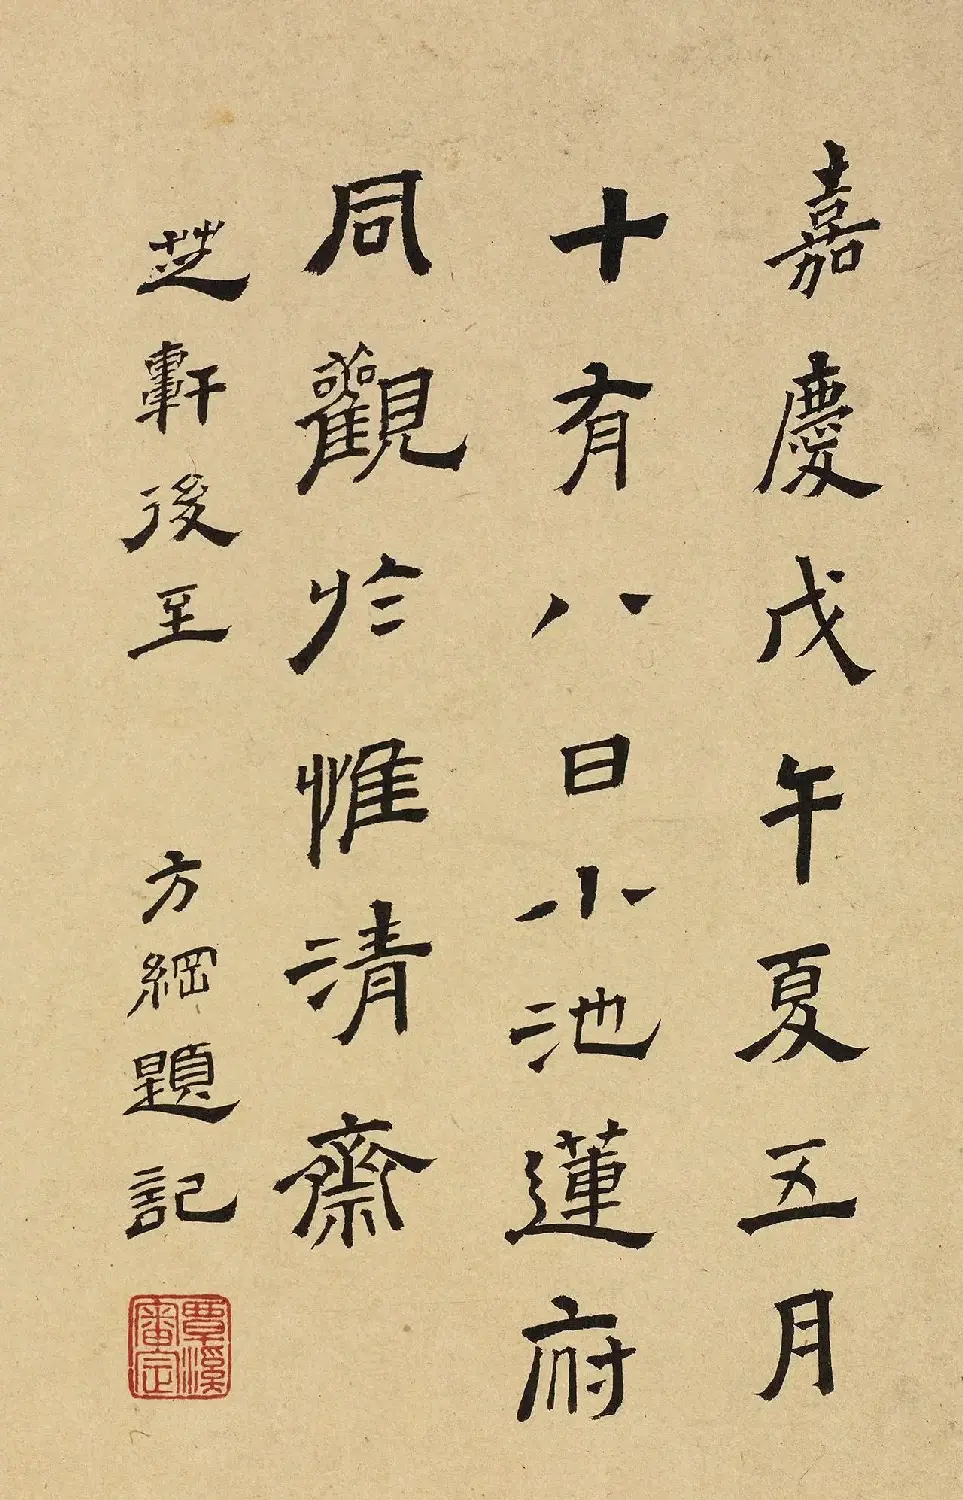 嘉慶戊午夏五月
十有八日小池蓮府
同觀於惟清齋
芝軒後至 方綱題記
覃溪審定